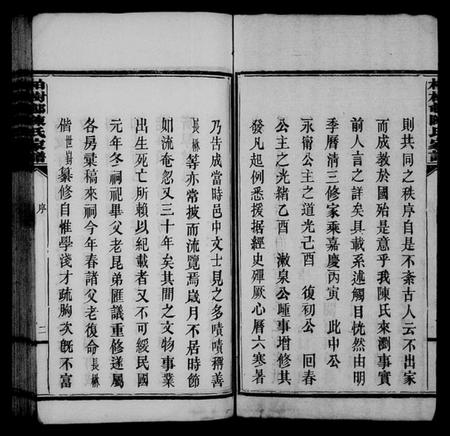 則共同之秩序自是不紊古人云不出家
而成教於國殆是意乎我陳氏來瀏事實
前人言之詳矣具載系述觸目恍然由明
季曆清三修家乘嘉慶丙寅 此中公
永衛公主之道光己酉 復初公 回春
公主之光緒乙酉 漱泉公踵事增修其
發凡起例悉援據經史殫厥心曆六寒暑
乃告成當時邑中文士見之多嘖嘖稱善
長 等亦常披而流覽焉歲月不居時節
如流奄忽又三十年矣其間之文物事業
出生死亡所賴以紀載者又不可綏民國
元年冬祠祀畢父老昆弟匯議重修遂屬
各房彙稿來祠今年春諸父老復命長
偕世 纂修自惟學淺才疏胸次既不富
柏樹 陳氏家譜
序
二